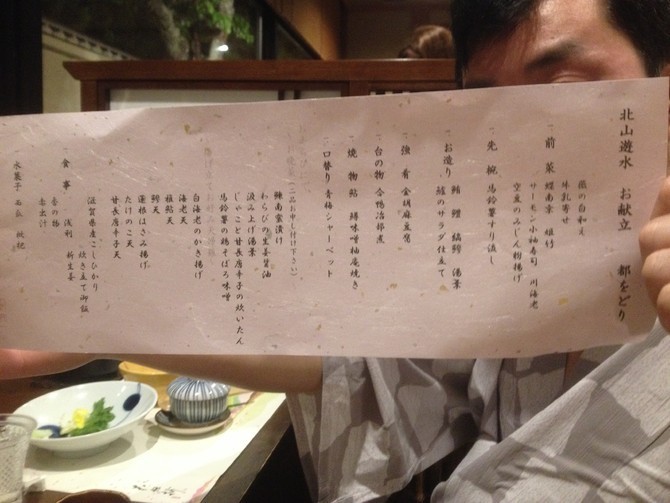 北山遊水 お献立 都をどり
蕨の白和え
牛乳寄せ
一 前菜 鰹南京 姫竹
サーモン小袖寿司 川海老
空豆のみじん粉揚げ
一 先椀 馬鈴薯すり流し
一 お造り 鮪 鯉 縞鯵 湯葉
鱧のサラダ仕立て
一 強肴 金胡麻豆腐
一 台の物 合鴨冶部煮
一 焼物 鮎 鱒味噌柚庵焼き
一 口替り 青梅シャーベット
(二品お申し付け下さい)
鰊南蛮漬け
わらびの生姜醤油
汲み上げ湯葉
じゃこと甘長唐辛子の炊いたん
馬鈴薯の鶏そぼろ味噌
白海老のかき揚げ
海老天
稚鮎天
鱚天
蓮根はさみ揚げ
たけのこ天
甘長唐辛子天
滋賀県産こしひかり
炊き立て御飯
一 食事 浅利 新生姜
香の物
赤出汁
一 水菓子 西瓜 枇杷